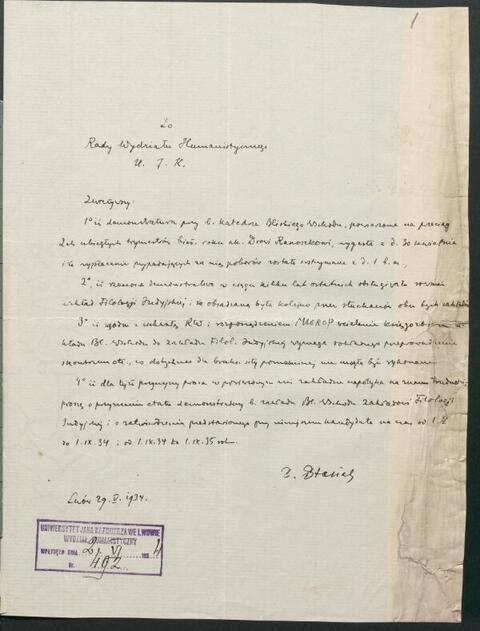 1
Do
Rady Wydziału Humanistycznego
U. J. K.
Zważywszy:
1° iż demonstratura przy b. Katedrze Bliskiego Wschodu, powierzona na przeciąg
2ch ubiegłych trymestrów bież. roku ak. Drowi Ranoszkowi, wygasła z d. 30 kwietnia
i że wypłacenie przypadających za nią poborów zostało wstrzymane z d. 1 b. m.,
2° iż rzeczona demonstratura w ciągu kilku lat ostatnich obsługiwała również
zakład Filologii Indyjskiej i że obsadzana była kolejno przez słuchaczów obu tych zakładów
3° iż zgodna z uchwałą RW i rozporządzeniem MWROP wcielenie księgozbioru za-
kładu Bl. Wschodu do zakładu Filol. Indyjskiej wymaga dokładnego przeprowadzenia
skontrum etc., co dotychczas dla braku siły pomocniczej nie mogło być wykonane
4° iż dla tejże przyczyny praca w powierzonym mi zakładzie napotyka na znaczne trudności,
proszę o przyznanie etatu demonstratury b. zakładu Bl. Wschodu zakładowi Filologii
Indyjskiej i o zatwierdzenie przedstawionego przy niniejszem kandydata na czas od 1.
do 1. IX. 34 i od 1. IX. 34 do 1. IX. 35 roku.
Stasiak
Lwów 29. V. 1934.
UNIWERSYTET JANA KAZIMIERZA WE LWOWIE
WYDZIAŁ HUMANISTYCZNY
WPŁYNĘŁO DNIA 2. VI. 1934
Nr. 492